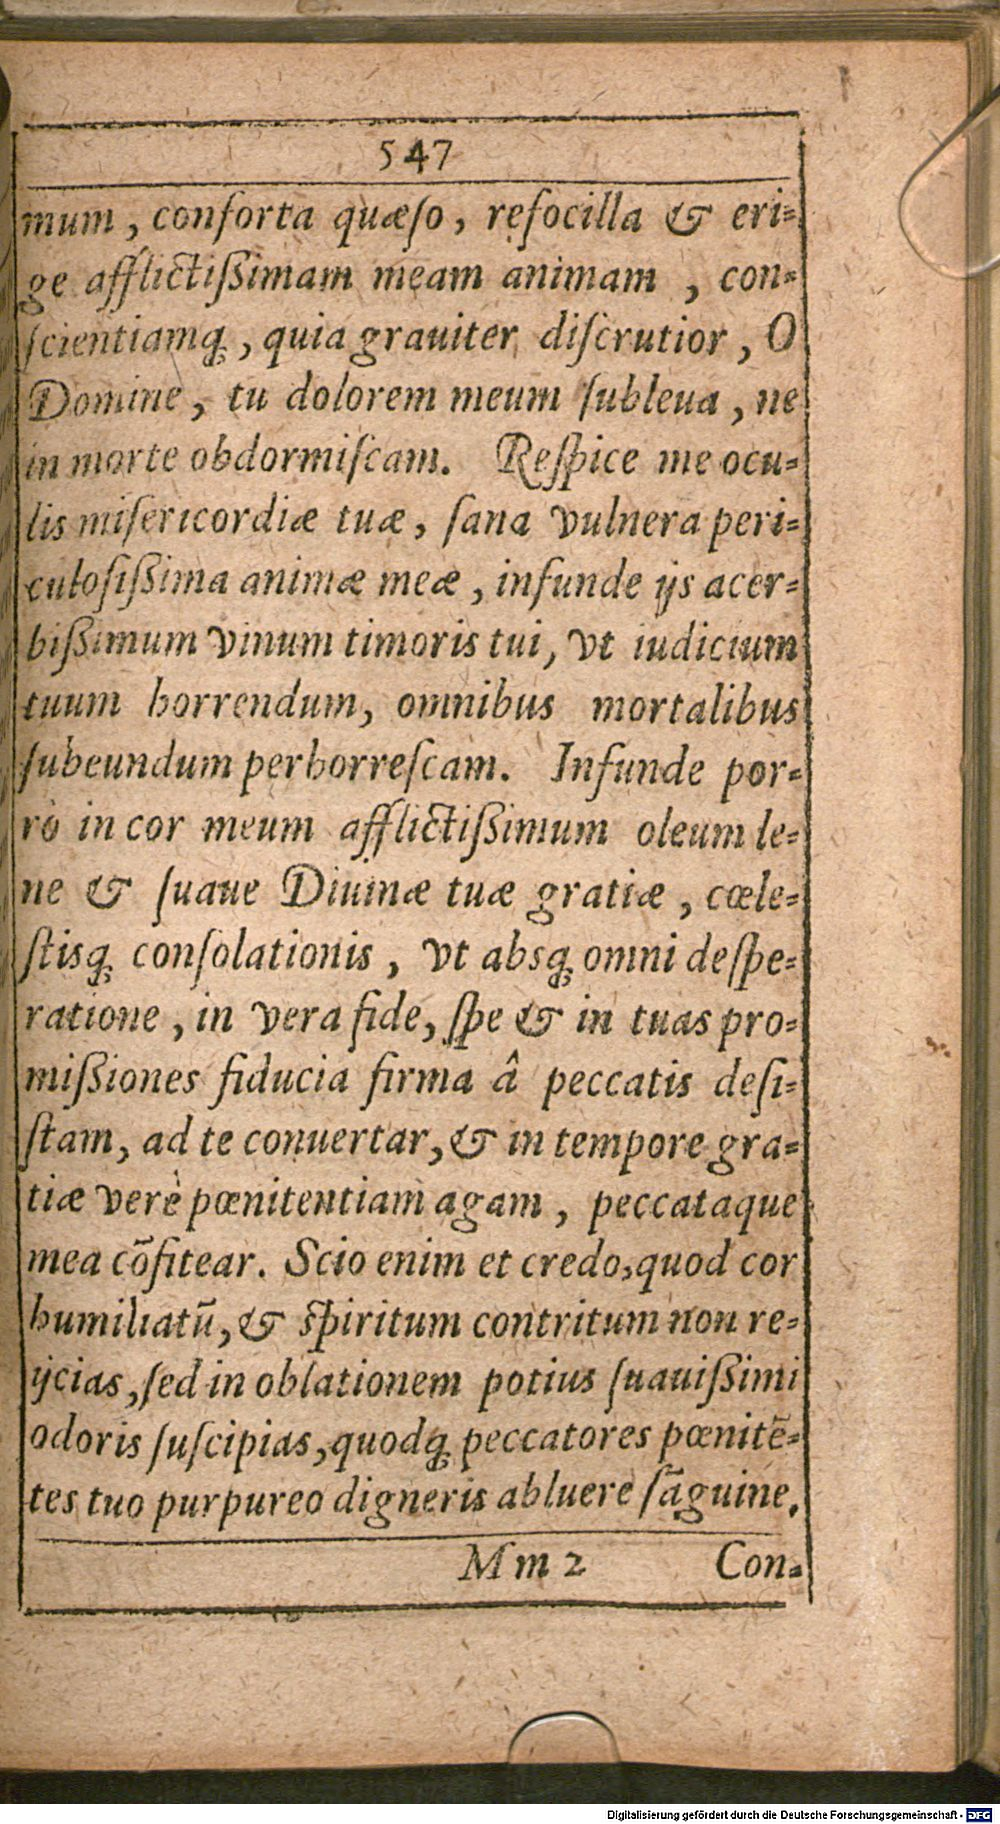 547
mum, conforta quæſo, refocilla & eri-
ge afflictiſſimam meam animam, con-
ſcientiamq́;, quia grauiter diſcrutior, O
Domine, tu dolorem meum ſubleua, ne
in morte obdormiſcam. Reſpice me ocu-
lis miſericordiæ tuæ, ſana vulnera peri-
culoſiſſima animæ meæ, infunde ijs acer-
biſſimum vinum timoris tui, vt iudicium
tuum horrendum, omnibus mortalibus
ſubeundum perhorreſcam. Infunde por-
rò in cor meum afflictiſſimum oleum le-
ne & ſuaue Diuinæ tuæ gratiæ, cœle-
ſtisq; conſolationis, vt absq; omni deſpe-
ratione, in vera fide, ſpe & in tuas pro-
miſſiones fiducia firma â peccatis deſi-
ſtam, ad te conuertar, & in tempore gra-
tiæ verè pœnitentiam agam, peccataque
mea cõfitear. Scio enim et credo, quod cor
humiliatũ, & ſpiritum contritum non re-
ijcias, ſed in oblationem potius ſuauiſſimi
odoris ſuſcipias, quodq; peccatores pœnitẽ-
tes tuo purpureo digneris abluere ſãguine.
Mm 2 Con-
Digitalisierung gefördert durch die Deutsche Forschungsgemeinschaft - DFG